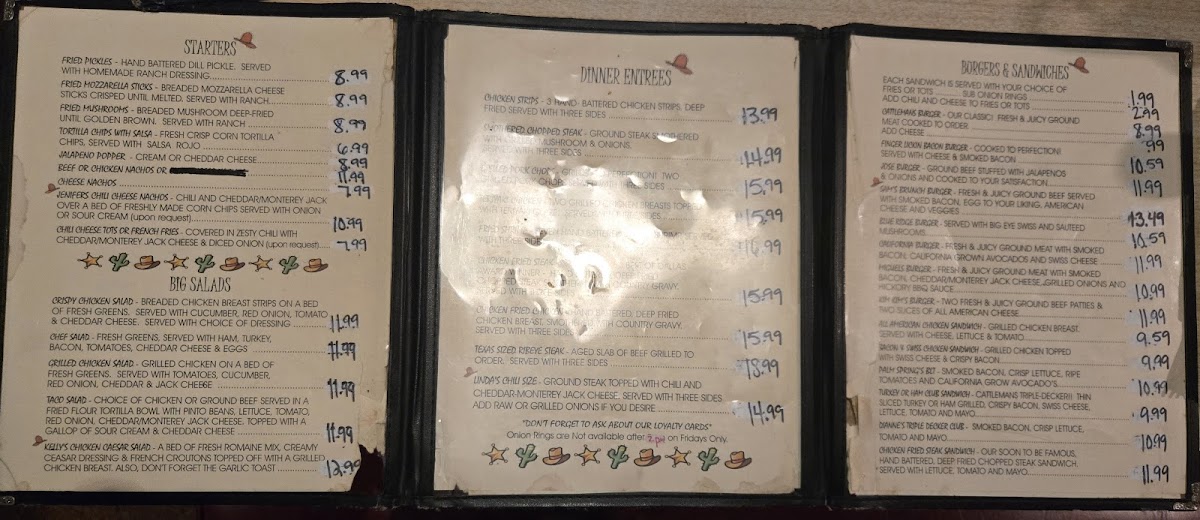 STARTERS
FRIED PICKLES - HAND BATTERED DILL PICKLE. SERVED
WITH HOMEMADE RANCH DRESSING 8.99
FRIED MOZZARELLA STICKS - BREADED MOZZARELLA CHEESE
STICKS CRISPED UNTIL MELTED. SERVED WITH RANCH 8.99
FRIED MUSHROOMS - BREADED MUSHROOM DEEP-FRIED
UNTIL GOLDEN BROWN. SERVED WITH RANCH 8.99
TORTILLA CHIPS WITH SALSA - FRESH CRISP CORN TORTILLA
CHIPS, SERVED WITH SALSA ROJO 6.99
JALAPENO POPPER - CREAM OR CHEDDAR CHEESE 8.99
BEEF OR CHICKEN NACHOS OR 11.99
CHEESE NACHOS 7.99
JENIFERS CHILI CHEESE NACHOS - CHILI AND CHEDDAR/MONTEREY JACK
OVER A BED OF FRESHLY MADE CORN CHIPS SERVED WITH ONION
OR SOUR CREAM (upon request) 10.99
CHILI CHEESE TOTS OR FRENCH FRIES - COVERED IN ZESTY CHILI WITH
CHEDDAR/MONTEREY JACK CHEESE & DICED ONION (upon request) 7.99
BIG SALADS
CRISPY CHICKEN SALAD - BREADED CHICKEN BREAST STRIPS ON A BED
OF FRESH GREENS. SERVED WITH CUCUMBER, RED ONION, TOMATO
& CHEDDAR CHEESE. SERVED WITH CHOICE OF DRESSING 11.99
CHEF SALAD - FRESH GREENS, SERVED WITH HAM, TURKEY,
BACON, TOMATOES, CHEDDAR CHEESE & EGGS 11.99
GRILLED CHICKEN SALAD - GRILLED CHICKEN ON A BED OF
FRESH GREENS. SERVED WITH TOMATOES, CUCUMBER,
RED ONION, CHEDDAR & JACK CHEESE 11.99
TACO SALAD - CHOICE OF CHICKEN OR GROUND BEEF SERVED IN A
FRIED FLOUR TORTILLA BOWL WITH PINTO BEANS, LETTUCE, TOMATO,
RED ONION, CHEDDAR/MONTEREY JACK CHEESE. TOPPED WITH A
GALLOP OF SOUR CREAM & CHEDDAR CHEESE 11.99
KELLY'S CHICKEN CAESAR SALAD - A BED OF FRESH ROMAINE MIX, CREAMY
CEASAR DRESSING & FRENCH CROUTONS TOPPED OFF WITH A GRILLED
CHICKEN BREAST. ALSO, DON'T FORGET THE GARLIC TOAST 12.99
DINNER ENTREES
CHICKEN STRIPS - 3 HAND-BATTERED CHICKEN STRIPS, DEEP
FRIED SERVED WITH THREE SIDES 13.99
CHOPPED STEAK - GROUND STEAK SMOTHERED
MUSHROOM & ONIONS.
SERVED WITH THREE SIDES 14.99
TWO
SIDES 15.99
TWO GRILLED CHICKEN BREASTS TOPPED
WITH 15.99
FRIED
WITH THREE 16.99
CHICKEN FRIED STEAK OF DALLAS
DINNER
WITH GRAVY. 15.99
CHICKEN FRIED BATTERED, DEEP FRIED
CHICKEN BREAST, WITH COUNTRY GRAVY.
SERVED WITH THREE SIDES 15.99
TEXAS SIZED RIBEYE STEAK - AGED SLAB OF BEEF GRILLED TO
ORDER. SERVED WITH THREE SIDES 18.99
LINDA'S CHILI SIZE - GROUND STEAK TOPPED WITH CHILI AND
CHEDDAR-MONTEREY JACK CHEESE, SERVED WITH THREE SIDES
ADD RAW OR GRILLED ONIONS IF YOU DESIRE 14.99
"DON'T FORGET TO ASK ABOUT OUR LOYALTY CARDS"
Onion Rings are Not available after 2 pm on Fridays Only.
BORGERS & SANDWICHES
EACH SANDWICH IS SERVED WITH YOUR CHOICE OF
FRIES OR TOTS SUB ONION RINGS 1.99
ADD CHILI AND CHEESE TO FRIES OR TOTS 2.99
CATTLEMANS BURGER - OUR CLASSIC! FRESH & JUICY GROUND
MEAT COOKED TO ORDER 8.99
ADD CHEESE .99
FINGER LICKIN BACON BURGER - COOKED TO PERFECTION!
SERVED WITH CHEESE & SMOKED BACON 10.59
JOSE BURGER - GROUND BEEF STUFFED WITH JALAPENOS
& ONIONS AND COOKED TO YOUR SATISFACTION 11.99
SAM'S BRUNCH BURGER - FRESH & JUICY GROUND BEEF SERVED
WITH SMOKED BACON, EGG TO YOUR LIKING, AMERICAN
CHEESE AND VEGGIES 13.49
RIDGE BURGER - SERVED WITH BIG EYE SWISS AND SAUTEED
MUSHROOMS 10.59
CALIFORNIA BURGER - FRESH & JUICY GROUND MEAT WITH SMOKED
BACON, CALIFORNIA GROWN AVOCADOS AND SWISS CHEESE 11.99
BURGER - FRESH & JUICY GROUND MEAT WITH SMOKED
BACON, CHEDDAR/MONTEREY JACK CHEESE, GRILLED ONIONS AND
HICKORY BBQ SAUCE 10.99
BURGER - TWO FRESH & JUICY GROUND BEEF PATTIES &
TWO SLICES OF ALL AMERICAN CHEESE 11.99
ALL AMERICAN CHICKEN SANDWICH - GRILLED CHICKEN BREAST,
SERVED WITH CHEESE, LETTUCE & TOMATO 9.59
BACON & SWISS CHICKEN SANDWICH - GRILLED CHICKEN TOPPED
WITH SWISS CHEESE & CRISPY BACON 9.99
PALM SPRING'S BLT - SMOKED BACON, CRISP LETTUCE, RIPE
TOMATOES AND CALIFORNIA GROW AVOCADO'S 10.99
TURKEY OR HAM CLUB SANDWICH - CATTLEMANS TRIPLE-DECKER!! THIN
SLICED TURKEY OR HAM GRILLED, CRISPY BACON, SWISS CHEESE,
LETTUCE, TOMATO AND MAYO 9.99
DIANNE'S TRIPLE DECKER CLUB - SMOKED BACON, CRISP LETTUCE,
TOMATO AND MAYO 10.99
CHICKEN FRIED STEAK SANDWICH - OUR SOON TO BE FAMOUS,
HAND BATTERED, DEEP FRIED CHOPPED STEAK SANDWICH.
SERVED WITH LETTUCE, TOMATO AND MAYO 11.99